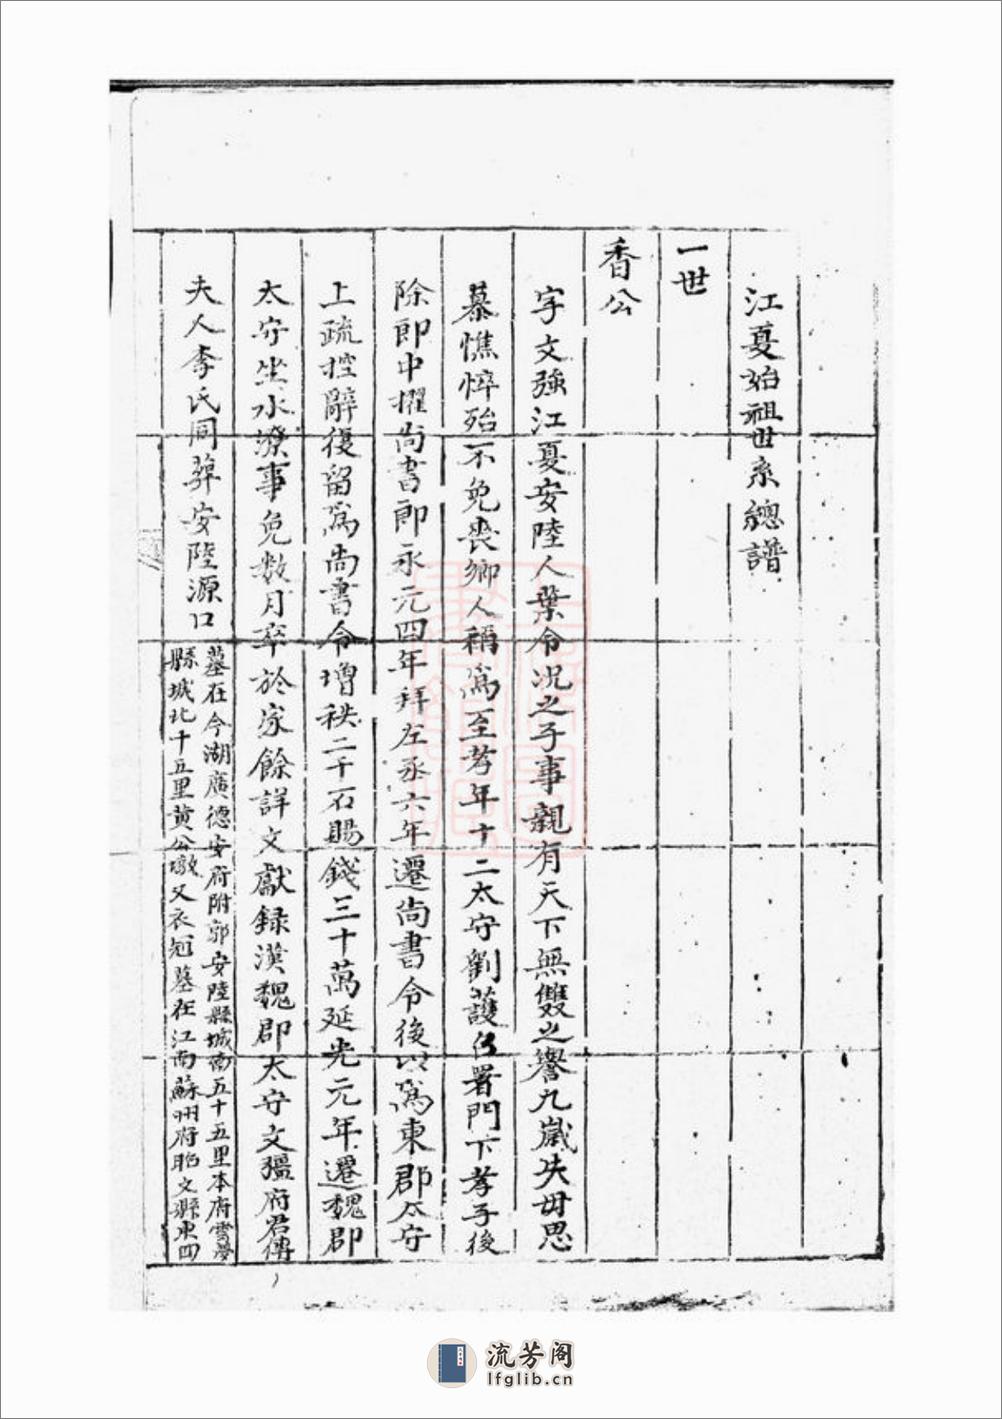 江夏始祖世系總譜
一世
香公
字文強江夏安陸人葉令況之子事親有天下無雙之譽九歲失母思
慕憔悴殆不免喪鄉人稱為至孝年十二太守劉護召署門下孝子後
除郎中擢尚書郎永元四年拜左丞六年遷尚書令後以為東郡太守
上疏控辭復留為尚書令增秩二千石賜錢三十萬延光元年遷魏郡
太守坐水潦事免數月卒於家餘詳文獻録漢魏郡太守文彊府君傳
夫人李氏同葬安陸源口
墓在今湖廣德安府附郭安陸縣城南五十五里本府雲夢
縣城北十五里黃公墩又衣冠墓在江南蘇州府昭文縣東四
流芳阁
lfglib.cn